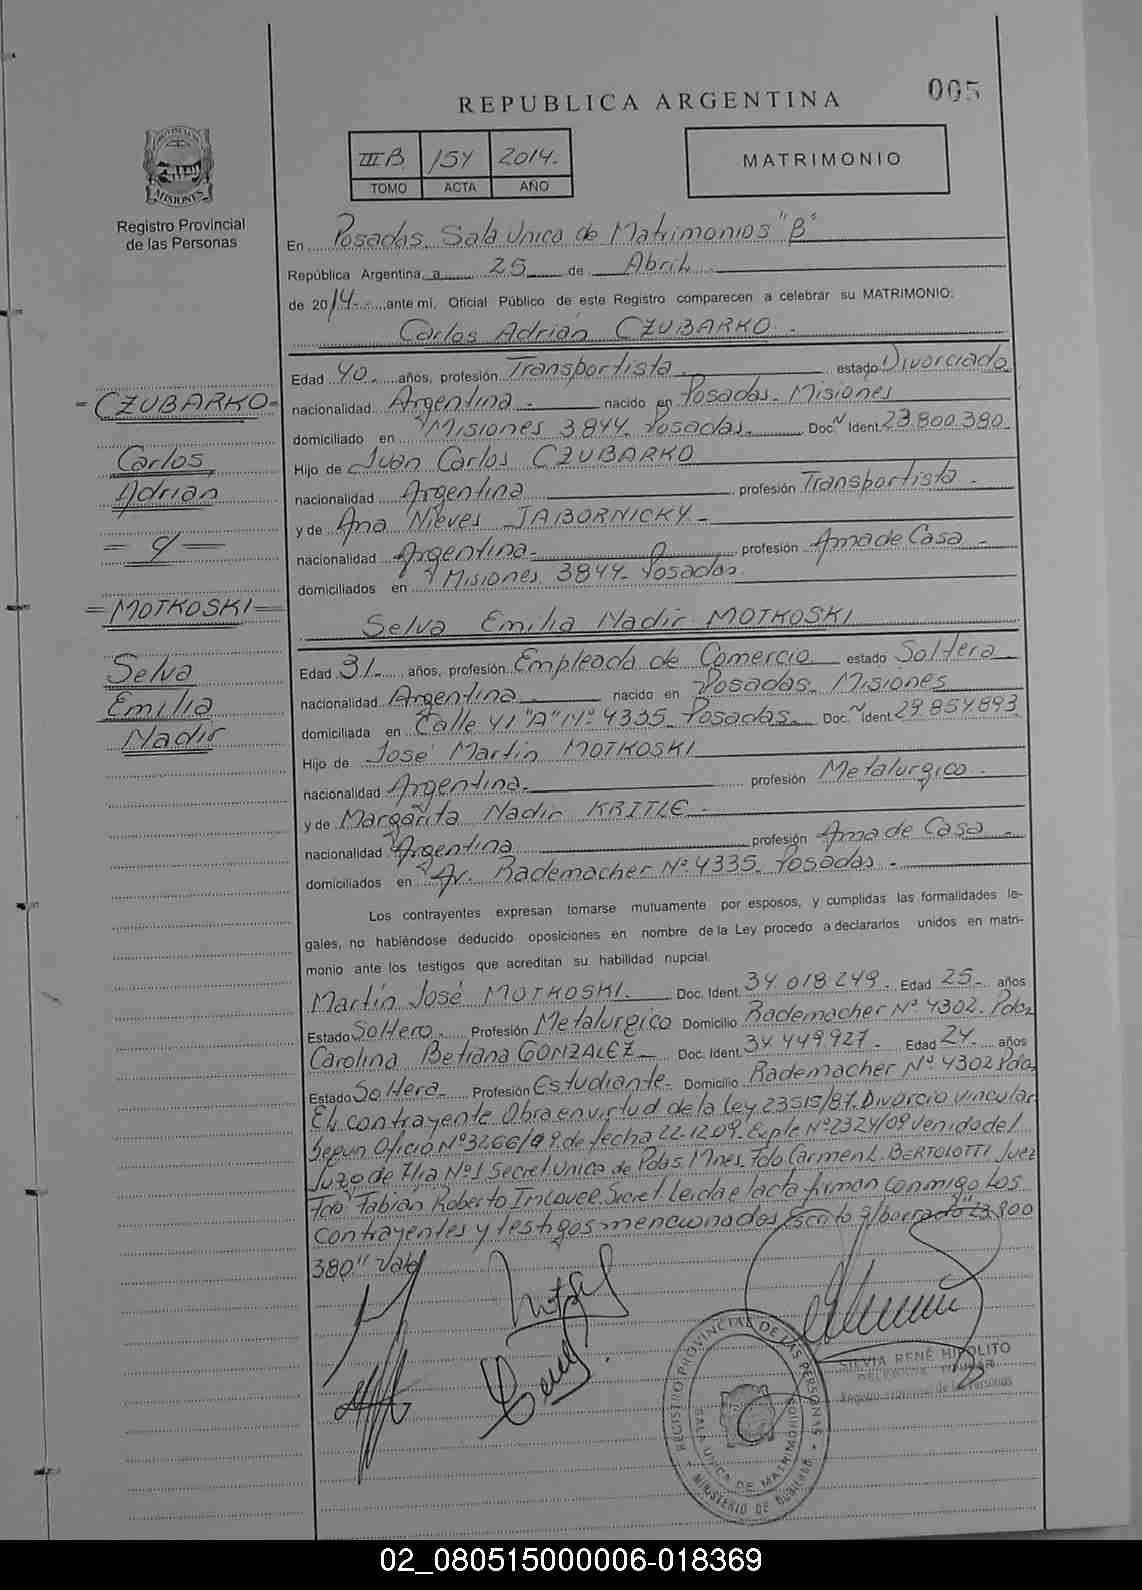 005
REPUBLICA ARGENTINA
III B. 154 2014.
TOMO ACTA AÑO
MATRIMONIO
PROVINCIA DE MISIONES
Registro Provincial
de las Personas
En Posadas. Sala Unica de Matrimonios "B"
República Argentina, a 25 de Abril.
de 2014- ante mí, Oficial Público de este Registro comparecen a celebrar su MATRIMONIO:
Carlos Adrián CZUBARKO.
Edad 40. años, profesión Transportista. estado Divorciado
nacionalidad Argentina. nacido en Posadas. Misiones
domiciliado en Misiones 3844. Posadas. Doc. Ident. 23.800.380
Hijo de Juan Carlos CZUBARKO
nacionalidad Argentina profesión Transportista.
y de Ana Nieves JABORNICKY.
nacionalidad Argentina. profesión Ama de Casa.
domiciliados en Misiones 3844. Posadas.
Selva Emilia Nadir MOTKOSKI
Edad 31. años, profesión Empleada de Comercio estado Soltera.
nacionalidad Argentina. nacido en Posadas. Misiones
domiciliada en Calle 41 "A" Nº 4335. Posadas. Doc. Ident. 29.854.893
Hijo de José Martin MOTKOSKI
nacionalidad Argentina. profesión Metalurgico.
y de Margarita Nadir KRITLE.
nacionalidad Argentina profesión Ama de Casa.
domiciliados en Av. Rademacher Nº 4335. Posadas.
Los contrayentes expresan tomarse mutuamente por esposos, y cumplidas las formalidades le-
gales, no habiéndose deducido oposiciones en nombre de la Ley procedo a declararlos unidos en matri-
monio ante los testigos que acreditan su habilidad nupcial.
Martín José MOTKOSKI. Doc. Ident. 34.018.249. Edad 25. años
Estado Soltero. Profesión Metalurgico Domicilio Rademacher Nº 4302. Pdas
Carolina Betiana GONZALEZ Doc. Ident. 34.449.927. Edad 24. años
Estado Soltera. Profesión Estudiante. Domicilio Rademacher Nº 4302 Pdas
El contrayente Obra en virtud de la Ley 23515/87. Divorcio vincular
segun Oficio Nº 3266/09. de fecha 22-12-09. Expte Nº 2324/09 venida del
Juzg de Flia Nº 1 Secret Unica de Pdas. Mnes. Fdo Carmen L. BERTOLOTTI Juez
Fdo Fabián Roberto Secret. Leida el acta firman conmigo los
contrayentes y testigos mencionados Escrito s/borrado "23.800
380" Vale
= CZUBARKO =
Carlos
Adrian
= y =
= MOTKOSKI =
Selva
Emilia
Nadir
REGISTRO PROVINCIAL DE LAS PERSONAS
SALA UNICA DE MATRIMONIOS
MINISTERIO DE GOBIERNO
SILVIA RENÉ HIPOLITO
Registro Provincial de las Personas
02_080515000006-018369